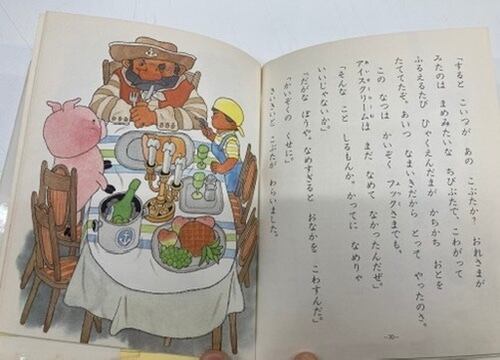 「すると こいつが あの こぶたか？ おれさまが
みたのは まめみたいな ちびぶたで、こわがって
ふるえるたび ひゃくえんだまが かちかち おとを
たててたぞ。あいつ なまいきだから とって やったのさ。
この なつは かいぞく フックさまでも、
アイスクリームは まだ なめて なかったんだぜ。」
「そんな こと しるもんか。かってに なめりゃ
いいじゃないか。」
「だがな ぼうや。なめすぎると おなかを こわすんだ。」
「かいぞくの くせに。」
きいきいと こぶたが わらいました。
—30—